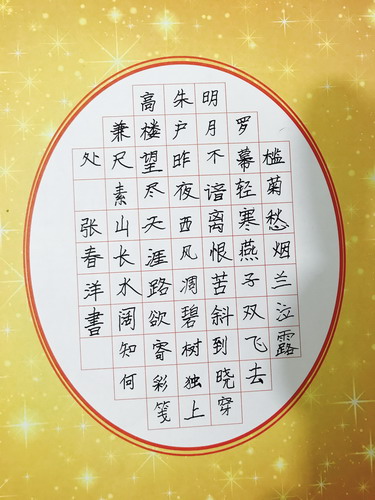 槛菊愁烟兰泣露
罗幕轻寒燕子双飞去
明月不谙离恨苦斜到晓穿
朱户昨夜西风凋碧树独上
高楼望尽天涯路欲寄彩笺
兼尺素山长水阔知何
处 张春洋書